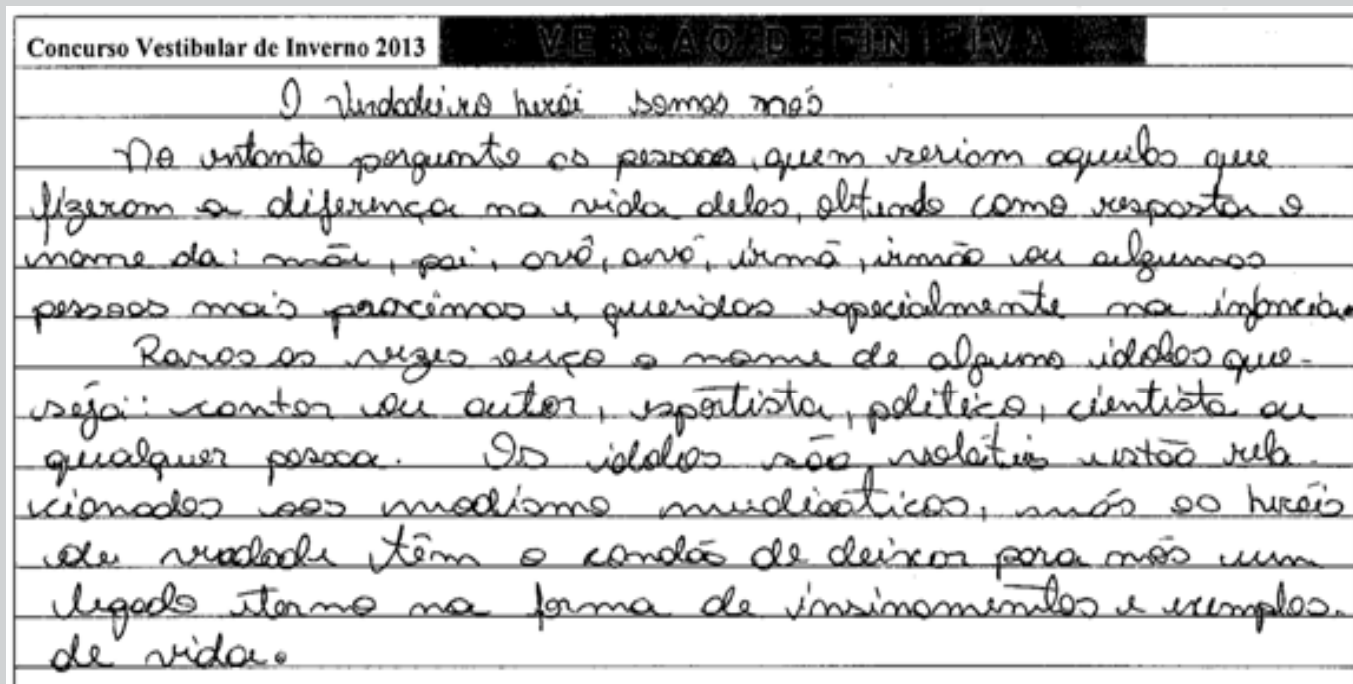 Concurso Vestibular de Inverno 2013 VERSÃO DEFINITIVA
O verdadeiro herói somos nós
No entanto pergunto as pessoas, quem seriam aquelas que
fizeram a diferença na vida delas, obtendo como resposta o
nome da: mãe, pai, avô, avó, irmã, irmão ou algumas
pessoas mais procimas e queridas especialmente na infância.
Raras as vezes ouço o nome de alguns idolos que
seja: cantor ou autor, esportista, político, cientista ou
qualquer pessoa. Os idolos são voláteis estão rela-
cionados aos modismo mediáticos, más os heróis
de verdade têm o condão de deixar para nós um
legado eterno na forma de ensinamentos e exemplos
de vida.